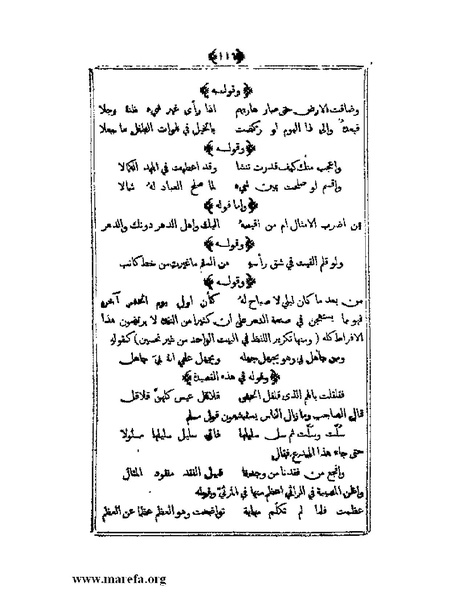 ﴿١١٦﴾
﴿وقوله﴾
وضاقت الارض حتى صار هاربهم اذا رأى غير شيء ظنه رجلا
فبعده والى ذا اليوم لو ركضت بالخيل في لهوات الطفل ما سعلا
﴿وقوله﴾
واعجب منك كيف قدرت تنشا وقد اعطيت في المهد الكمالا
واقسم لو صلحت يمين شيء لما صلح العباد له شمالا
﴿واما قوله﴾
من اضرب الامثال ام من اقيسه اليك واهل الدهر دونك والدهر
﴿وقوله﴾
ولو قلم القيت في شق رأسه من السقم ما غيرت من خط كاتب
﴿وقوله﴾
من بعد ما كان ليلي لا صباح له كأن اول يوم الحشر آخره
فهو مما يستهجن في صنعة الشعر على ان كثيرا من النقدة لا يرتضون هذا
الافراط كله (ومنها تكرير اللفظ في البيت الواحد من غير تحسين) كقوله
ومن جاهل بي وهو يجهل جهله ويجهل علمي انه بي جاهل
﴿وقوله في هذه القصيدة﴾
فقلقلت بالهم الذي قلقل الحشى قلاقل عيس كلهن قلاقل
قال الصاحب وما زال الناس يستبشعون قول مسلم
سلت وسلت ثم سل سليلها فاتى سليل سليلها مسلولا
حتى جاء هذا المبدع فقال
وافجع من فقدنا من وجدنا قبيل الفقد مفقود المثال
واظن المصيبة في الراثي اعظم منها في المرثي وقوله
عظمت فلما لم تكلم مهابة تواضعت وهو العظم عظما عن العظم
www.marefa.org